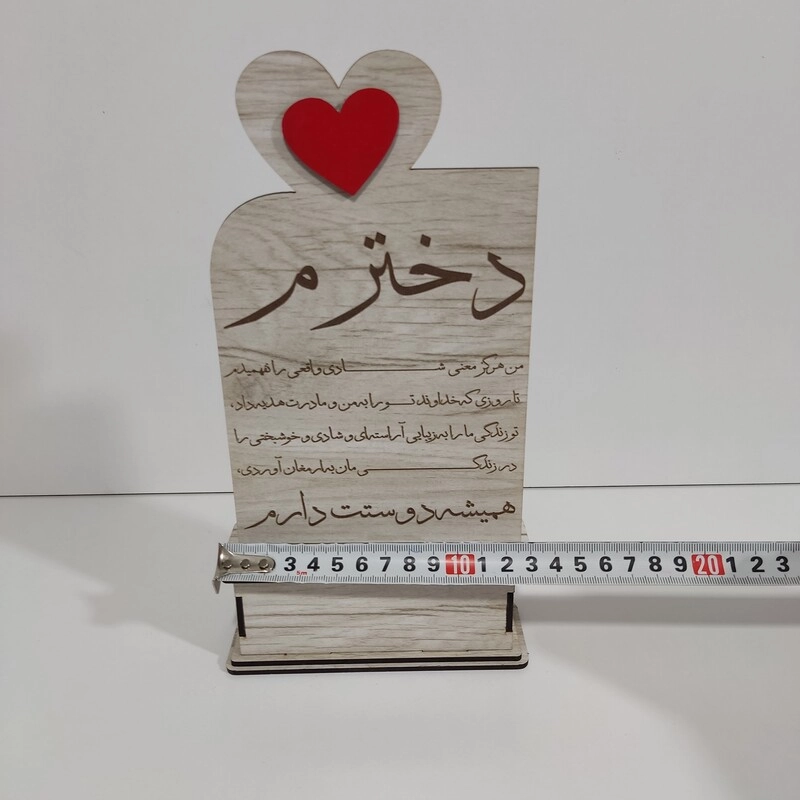 دخترم
من هرگز معنی شادی واقعی را نفهمیدم
تا روزی که خداوند تو را به من و مادرت هدیه داد،
تو زندگی ما را به زیبایی آراسته‌ای و شادی و خوشبختی را
در زندگی مان به ارمغان آوردی،
همیشه دوستت دارم
3 4 5 6 7 8 9 10 1 2 3 4 5 6 7 8 9 20 1 2 3
5m